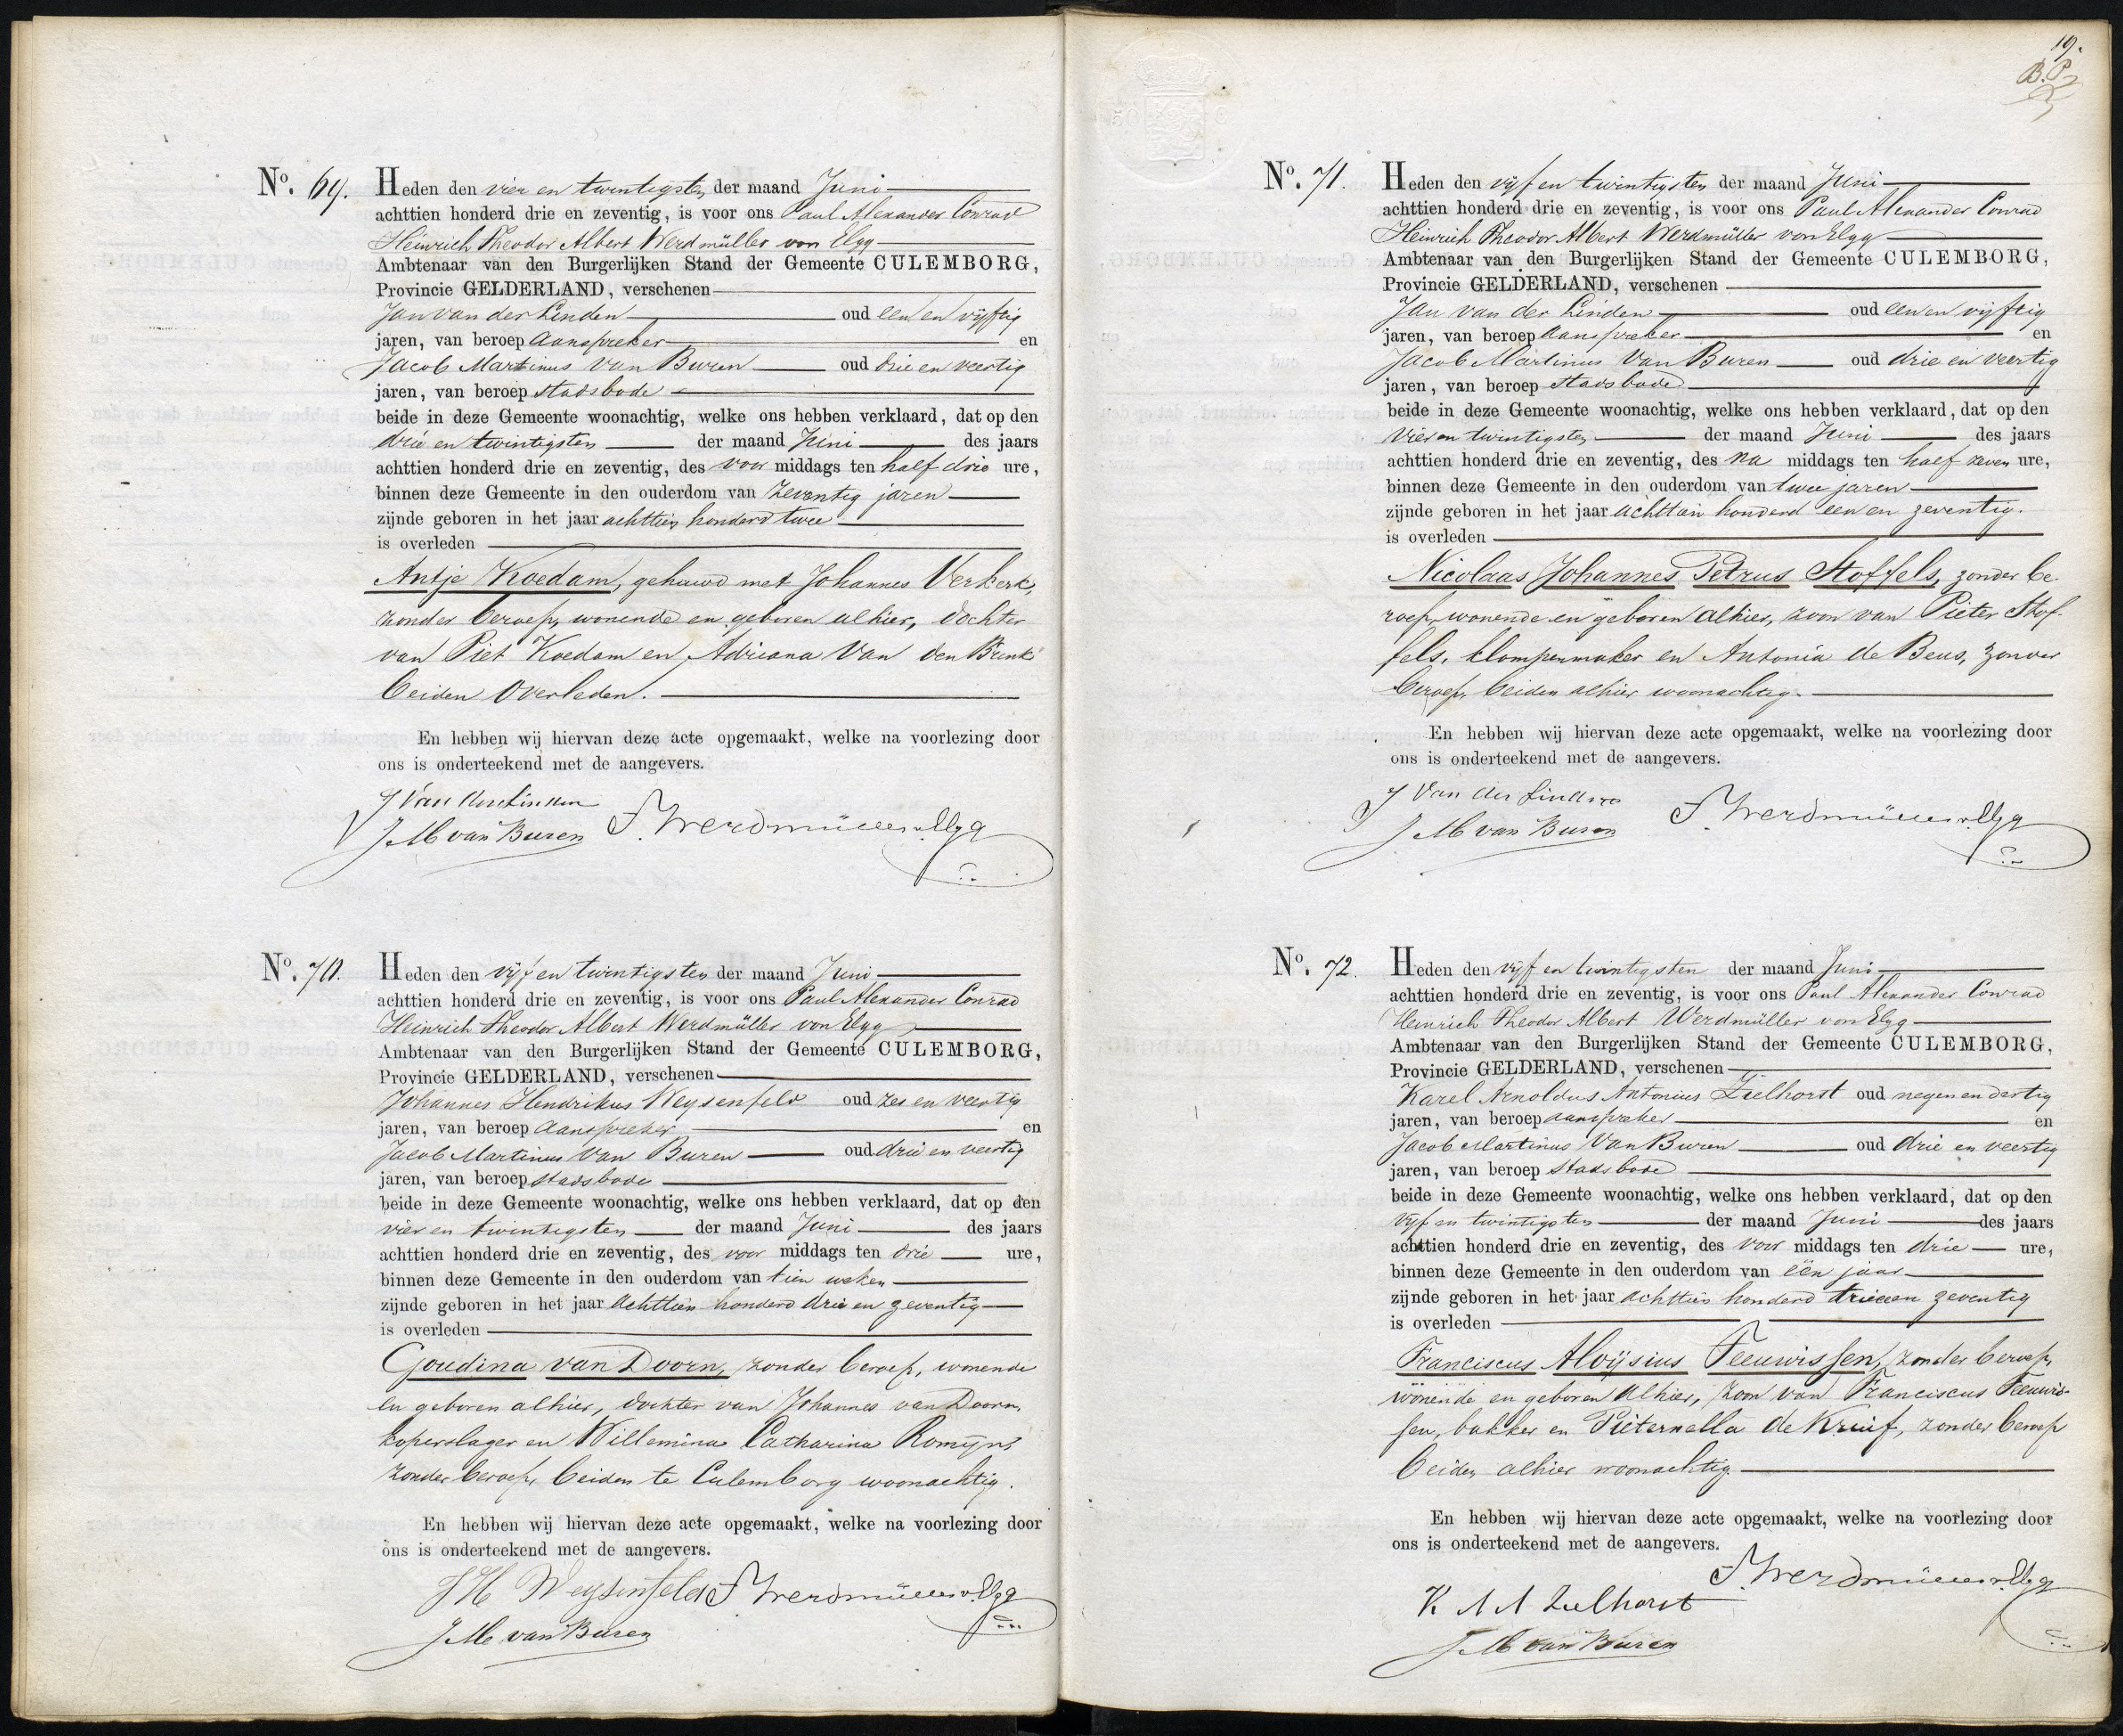 No. 69. Heden den vier en twintigsten der maand Juni
achttien honderd drie en zeventig, is voor ons Paul Alexander Conrad
Heinrich Theodor Albert Werdmüller von Elgg
Ambtenaar van den Burgerlijken Stand der Gemeente CULEMBORG,
Provincie GELDERLAND, verschenen
Jan van der Linden oud een en vijftig
jaren, van beroep Aanspreker en
Jacob Martinus van Buren oud drie en veertig
jaren, van beroep stadsbode
beide in deze Gemeente woonachtig, welke ons hebben verklaard, dat op den
drie en twintigsten der maand Juni des jaars
achttien honderd drie en zeventig, des voor middags ten half drie ure,
binnen deze Gemeente in den ouderdom van zeventig jaren
zijnde geboren in het jaar achttien honderd twee
is overleden
Antje Koedam, gehuwd met Johannes Verkerk,
zonder beroep, wonende en geboren alhier, dochter
van Piet Koedam en Adriana Van den Brink
beiden overleden.
En hebben wij hiervan deze acte opgemaakt, welke na voorlezing door
ons is onderteekend met de aangevers.
J Van der Linden
J M van Buren Werdmüller v. Elgg
No. 70. Heden den vijf en twintigsten der maand Juni
achttien honderd drie en zeventig, is voor ons Paul Alexander Conrad
Heinrich Theodor Albert Werdmüller von Elgg
Ambtenaar van den Burgerlijken Stand der Gemeente CULEMBORG,
Provincie GELDERLAND, verschenen
Johannes Hendrikus Weysenfeld oud zes en veertig
jaren, van beroep Aanspreker en
Jacob Martinus van Buren oud drie en veertig
jaren, van beroep stadsbode
beide in deze Gemeente woonachtig, welke ons hebben verklaard, dat op den
vier en twintigsten der maand Juni des jaars
achttien honderd drie en zeventig, des voor middags ten drie ure,
binnen deze Gemeente in den ouderdom van tien weken
zijnde geboren in het jaar achttien honderd drie en zeventig
is overleden
Goudina van Doorn, zonder beroep, wonende
en geboren alhier, dochter van Johannes van Doorn,
koperslager en Willemina Catharina Romijn,
zonder beroep, beiden te Culemborg woonachtig.
En hebben wij hiervan deze acte opgemaakt, welke na voorlezing door
ons is onderteekend met de aangevers.
J H Weysenfeld Werdmüller v. Elgg
J M van Buren
19.
B.P.
No. 71. Heden den vijf en twintigsten der maand Juni
achttien honderd drie en zeventig, is voor ons Paul Alexander Conrad
Heinrich Theodor Albert Werdmüller von Elgg
Ambtenaar van den Burgerlijken Stand der Gemeente CULEMBORG,
Provincie GELDERLAND, verschenen
Jan van der Linden oud een en vijftig
jaren, van beroep Aanspreker en
Jacob Martinus van Buren oud drie en veertig
jaren, van beroep stadsbode
beide in deze Gemeente woonachtig, welke ons hebben verklaard, dat op den
vier en twintigsten der maand Juni des jaars
achttien honderd drie en zeventig, des na middags ten half zeven ure,
binnen deze Gemeente in den ouderdom van twee jaren
zijnde geboren in het jaar achttien honderd een en zeventig.
is overleden
Nicolaas Johannes Petrus Stoffels, zonder be-
roep, wonende en geboren alhier, zoon van Pieter Stof-
fels, klompenmaker en Antonia de Beus, zonder
beroep, beiden alhier woonachtig.
En hebben wij hiervan deze acte opgemaakt, welke na voorlezing door
ons is onderteekend met de aangevers.
J Van der Linden
J M van Buren Werdmüller v. Elgg
No. 72. Heden den vijf en twintigsten der maand Juni
achttien honderd drie en zeventig, is voor ons Paul Alexander Conrad
Heinrich Theodor Albert Werdmüller von Elgg
Ambtenaar van den Burgerlijken Stand der Gemeente CULEMBORG,
Provincie GELDERLAND, verschenen
Karel Arnoldus Antonius Zielhorst oud negen en dertig
jaren, van beroep aanspreker en
Jacob Martinus van Buren oud drie en veertig
jaren, van beroep stadsbode
beide in deze Gemeente woonachtig, welke ons hebben verklaard, dat op den
vijf en twintigsten der maand Juni des jaars
achttien honderd drie en zeventig, des voor middags ten drie ure,
binnen deze Gemeente in den ouderdom van één jaar
zijnde geboren in het jaar achttien honderd zeventig
is overleden
Franciscus Aloÿsius Teeuwissen, zonder beroep,
wonende en geboren alhier, zoon van Franciscus Teeuwis-
sen, bakker en Pieternella de Kruif, zonder beroep
beiden alhier woonachtig
En hebben wij hiervan deze acte opgemaakt, welke na voorlezing door
ons is onderteekend met de aangevers.
Werdmüller v. Elgg
K A A Zielhorst
J M van Buren